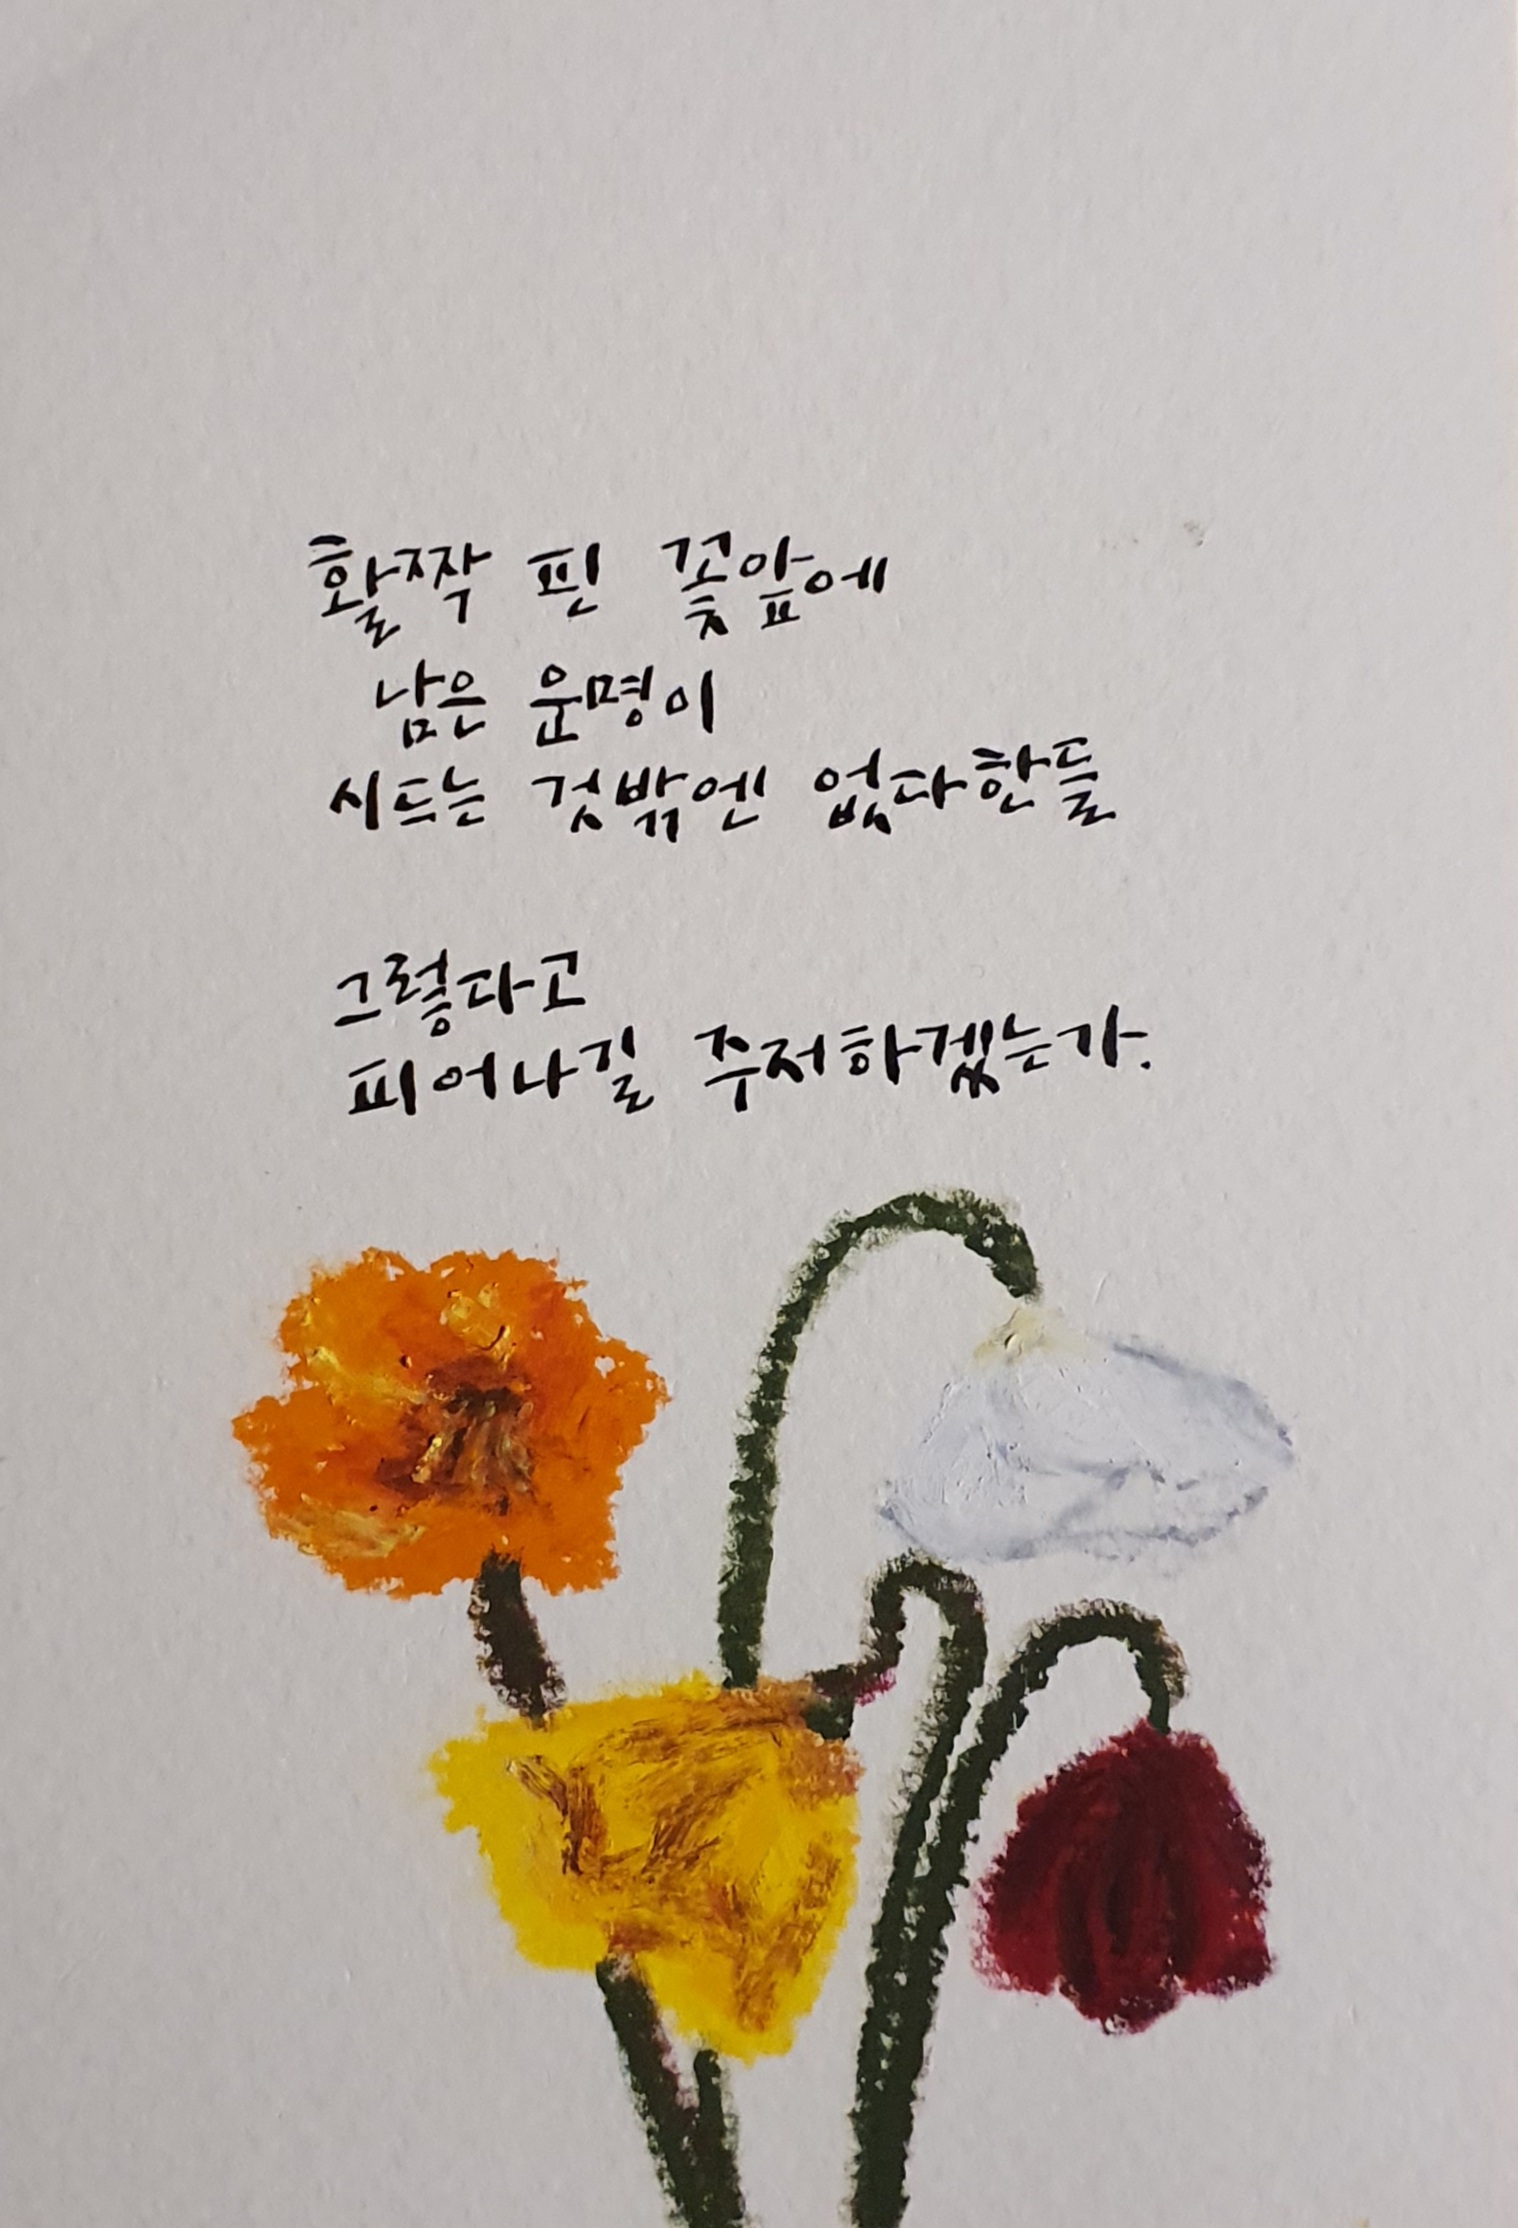 활짝 핀 꽃앞에
남은 운명이
시드는 것밖엔 없다한들
그렇다고
피어나길 주저하겠는가.